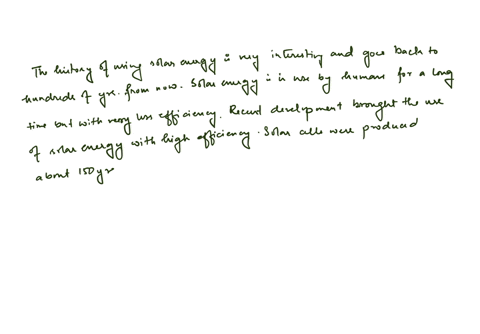 The history of using solar energy is very interesting and goes back to
hundreds of yrs. from now. Solar energy is in use by humans for a long
time but with very less efficiency. Recent development brought the use
of solar energy with high efficiency. Solar cells were produced
about 150 yr